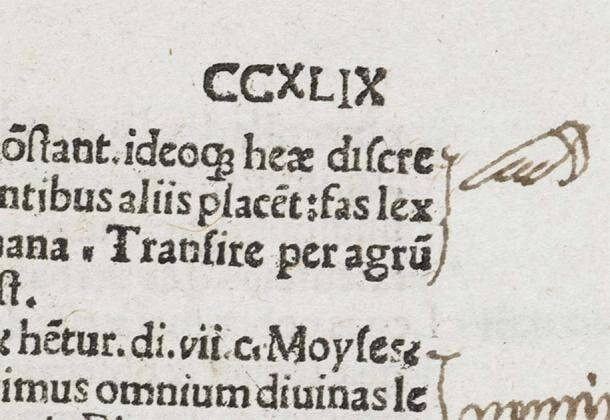 CCXLIX
ōſtant.ideoqꝫ heæ diſcre
ntibus aliis placēt:fas lex
ana . Tranſire per agrū
ſt.
hētur.di.vii.c.Moyſes.
imus omnium diuinas le